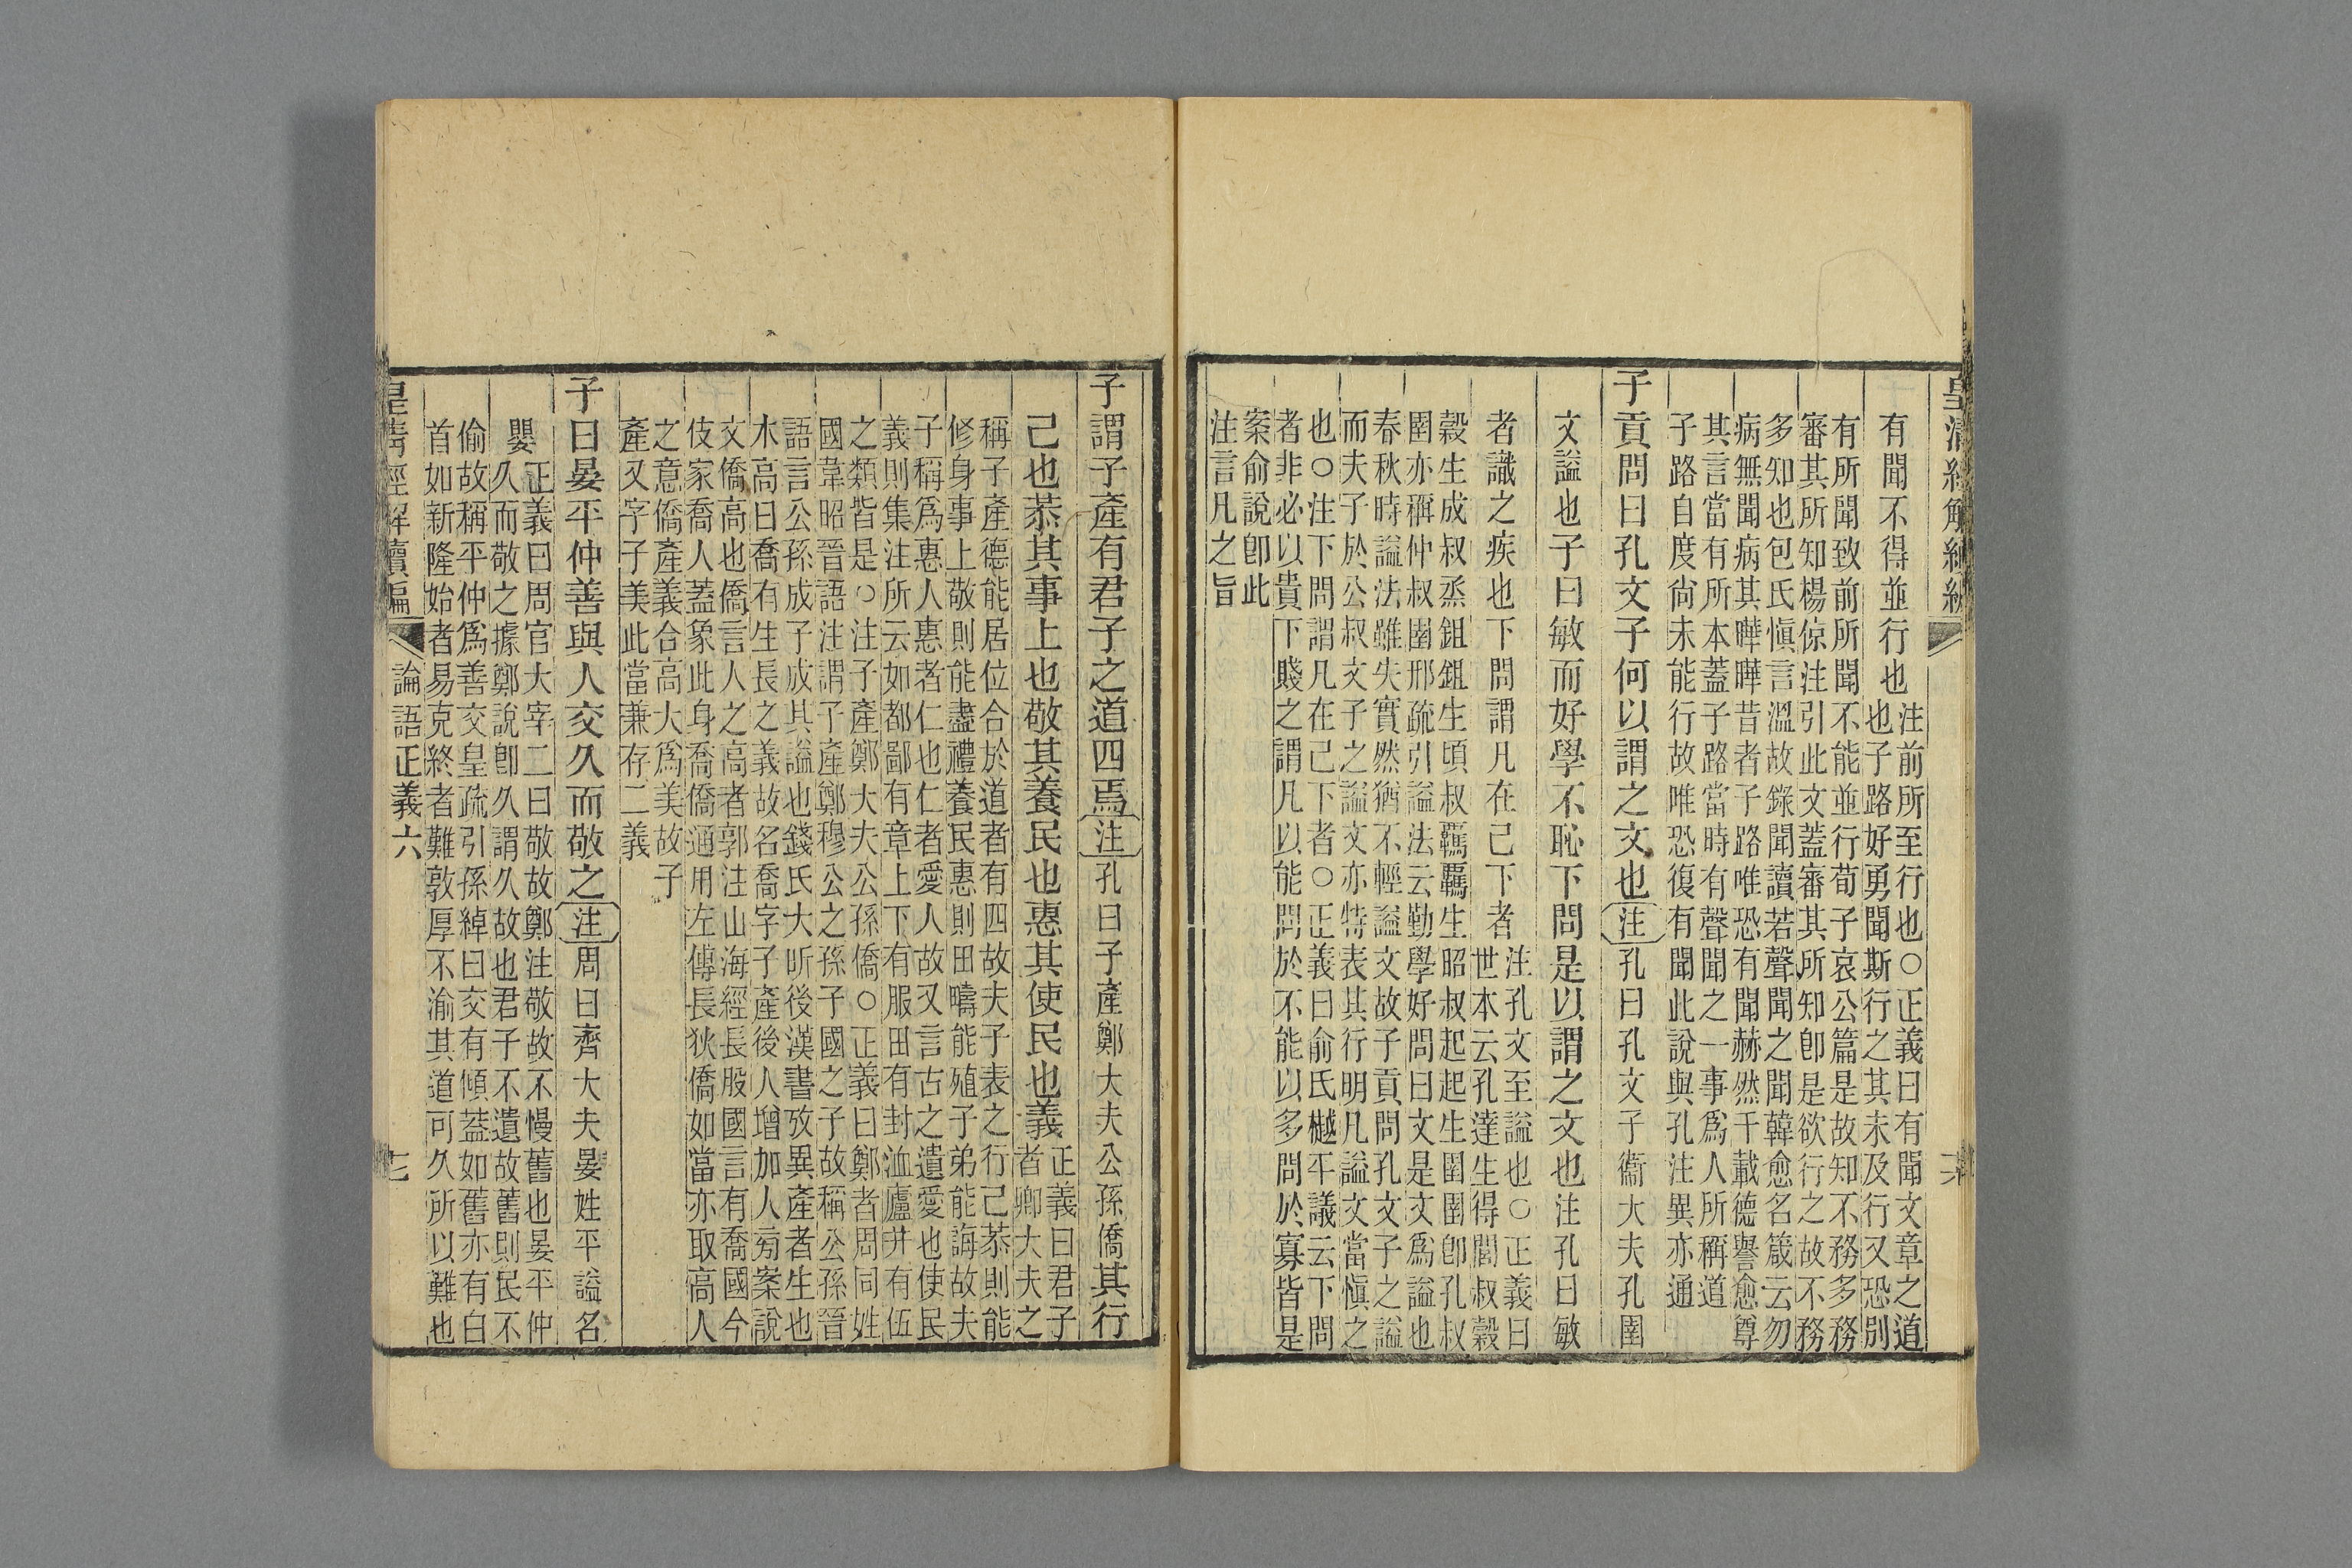 有聞不得並行也注前所至行也○正義曰有聞文章之道
也子路好勇聞斯行之其未及行又恐別
有所聞致前所聞不能並行荀子哀公篇是故知不務多務
審其所知楊倞注引此文蓋審其所知卽是欲行之故不務
多知也包氏慎言溫故錄聞讀若聲聞之聞韓愈名箴云勿
病無聞病其曄曄昔者子路唯恐有聞赫然千載德譽愈尊
其言當有所本蓋子路當時有聲聞之一事爲人所稱道
子路自度尙未能行故唯恐復有聞此說與孔注異亦通
子貢問曰孔文子何以謂之文也注孔曰孔文子衞大夫孔圉
文謚也子曰敏而好學不恥下問是以謂之文也注孔曰敏
者識之疾也下問謂凡在己下者注孔文至謚也○正義曰
世本云孔達生得閭叔穀
穀生成叔烝鉏鉏生頃叔羈羈生昭叔起起生圉圉卽孔叔
圉亦稱仲叔圉邢疏引謚法云勤學好問曰文是文爲謚也
春秋時謚法雖失實然猶不輕謚文故子貢問孔文子之謚
而夫子於公叔文子之謚文亦特表其行明凡謚文當慎之
也○注下問謂凡在己下者○正義曰俞氏樾平議云下問
者非必以貴下賤之謂凡以能問於不能以多問於寡皆是
案俞說卽此
注言凡之旨
子謂子產有君子之道四焉注孔曰子產鄭大夫公孫僑其行
己也恭其事上也敬其養民也惠其使民也義正義曰君子
者卿大夫之
稱子產德能居位合於道者有四故夫子表之行己恭則能
修身事上敬則能盡禮養民惠則田疇能殖子弟能誨故夫
子稱爲惠人惠者仁也仁者愛人故又言古之遺愛也使民
義則集注所云如都鄙有章上下有服田有封洫廬井有伍
之類皆是○注子產鄭大夫公孫僑○正義曰鄭者周同姓
國韋昭晉語注謂子產鄭穆公之孫子國之子故稱公孫晉
語言公孫成子成其謚也錢氏大昕後漢書攷異產者生也
木高曰喬有生長之義故名喬字子產後人增加人旁案說
文僑高也僑言人之高者郭注山海經長股國言有喬國今
伎家喬人蓋象此身喬僑通用左傳長狄僑如當亦取高人
之意僑產義合高大爲美故子
產又字子美此當兼存二義
子曰晏平仲善與人交久而敬之注周曰齊大夫晏姓平謚名
嬰正義曰周官大宰二曰敬故鄭注敬故不慢舊也晏平仲
久而敬之據鄭說卽久謂久故也君子不遺故舊則民不
偷故稱平仲爲善交皇疏引孫綽曰交有傾蓋如舊亦有白
首如新隆始者易克終者難敦厚不渝其道可久所以難也
論語正義六